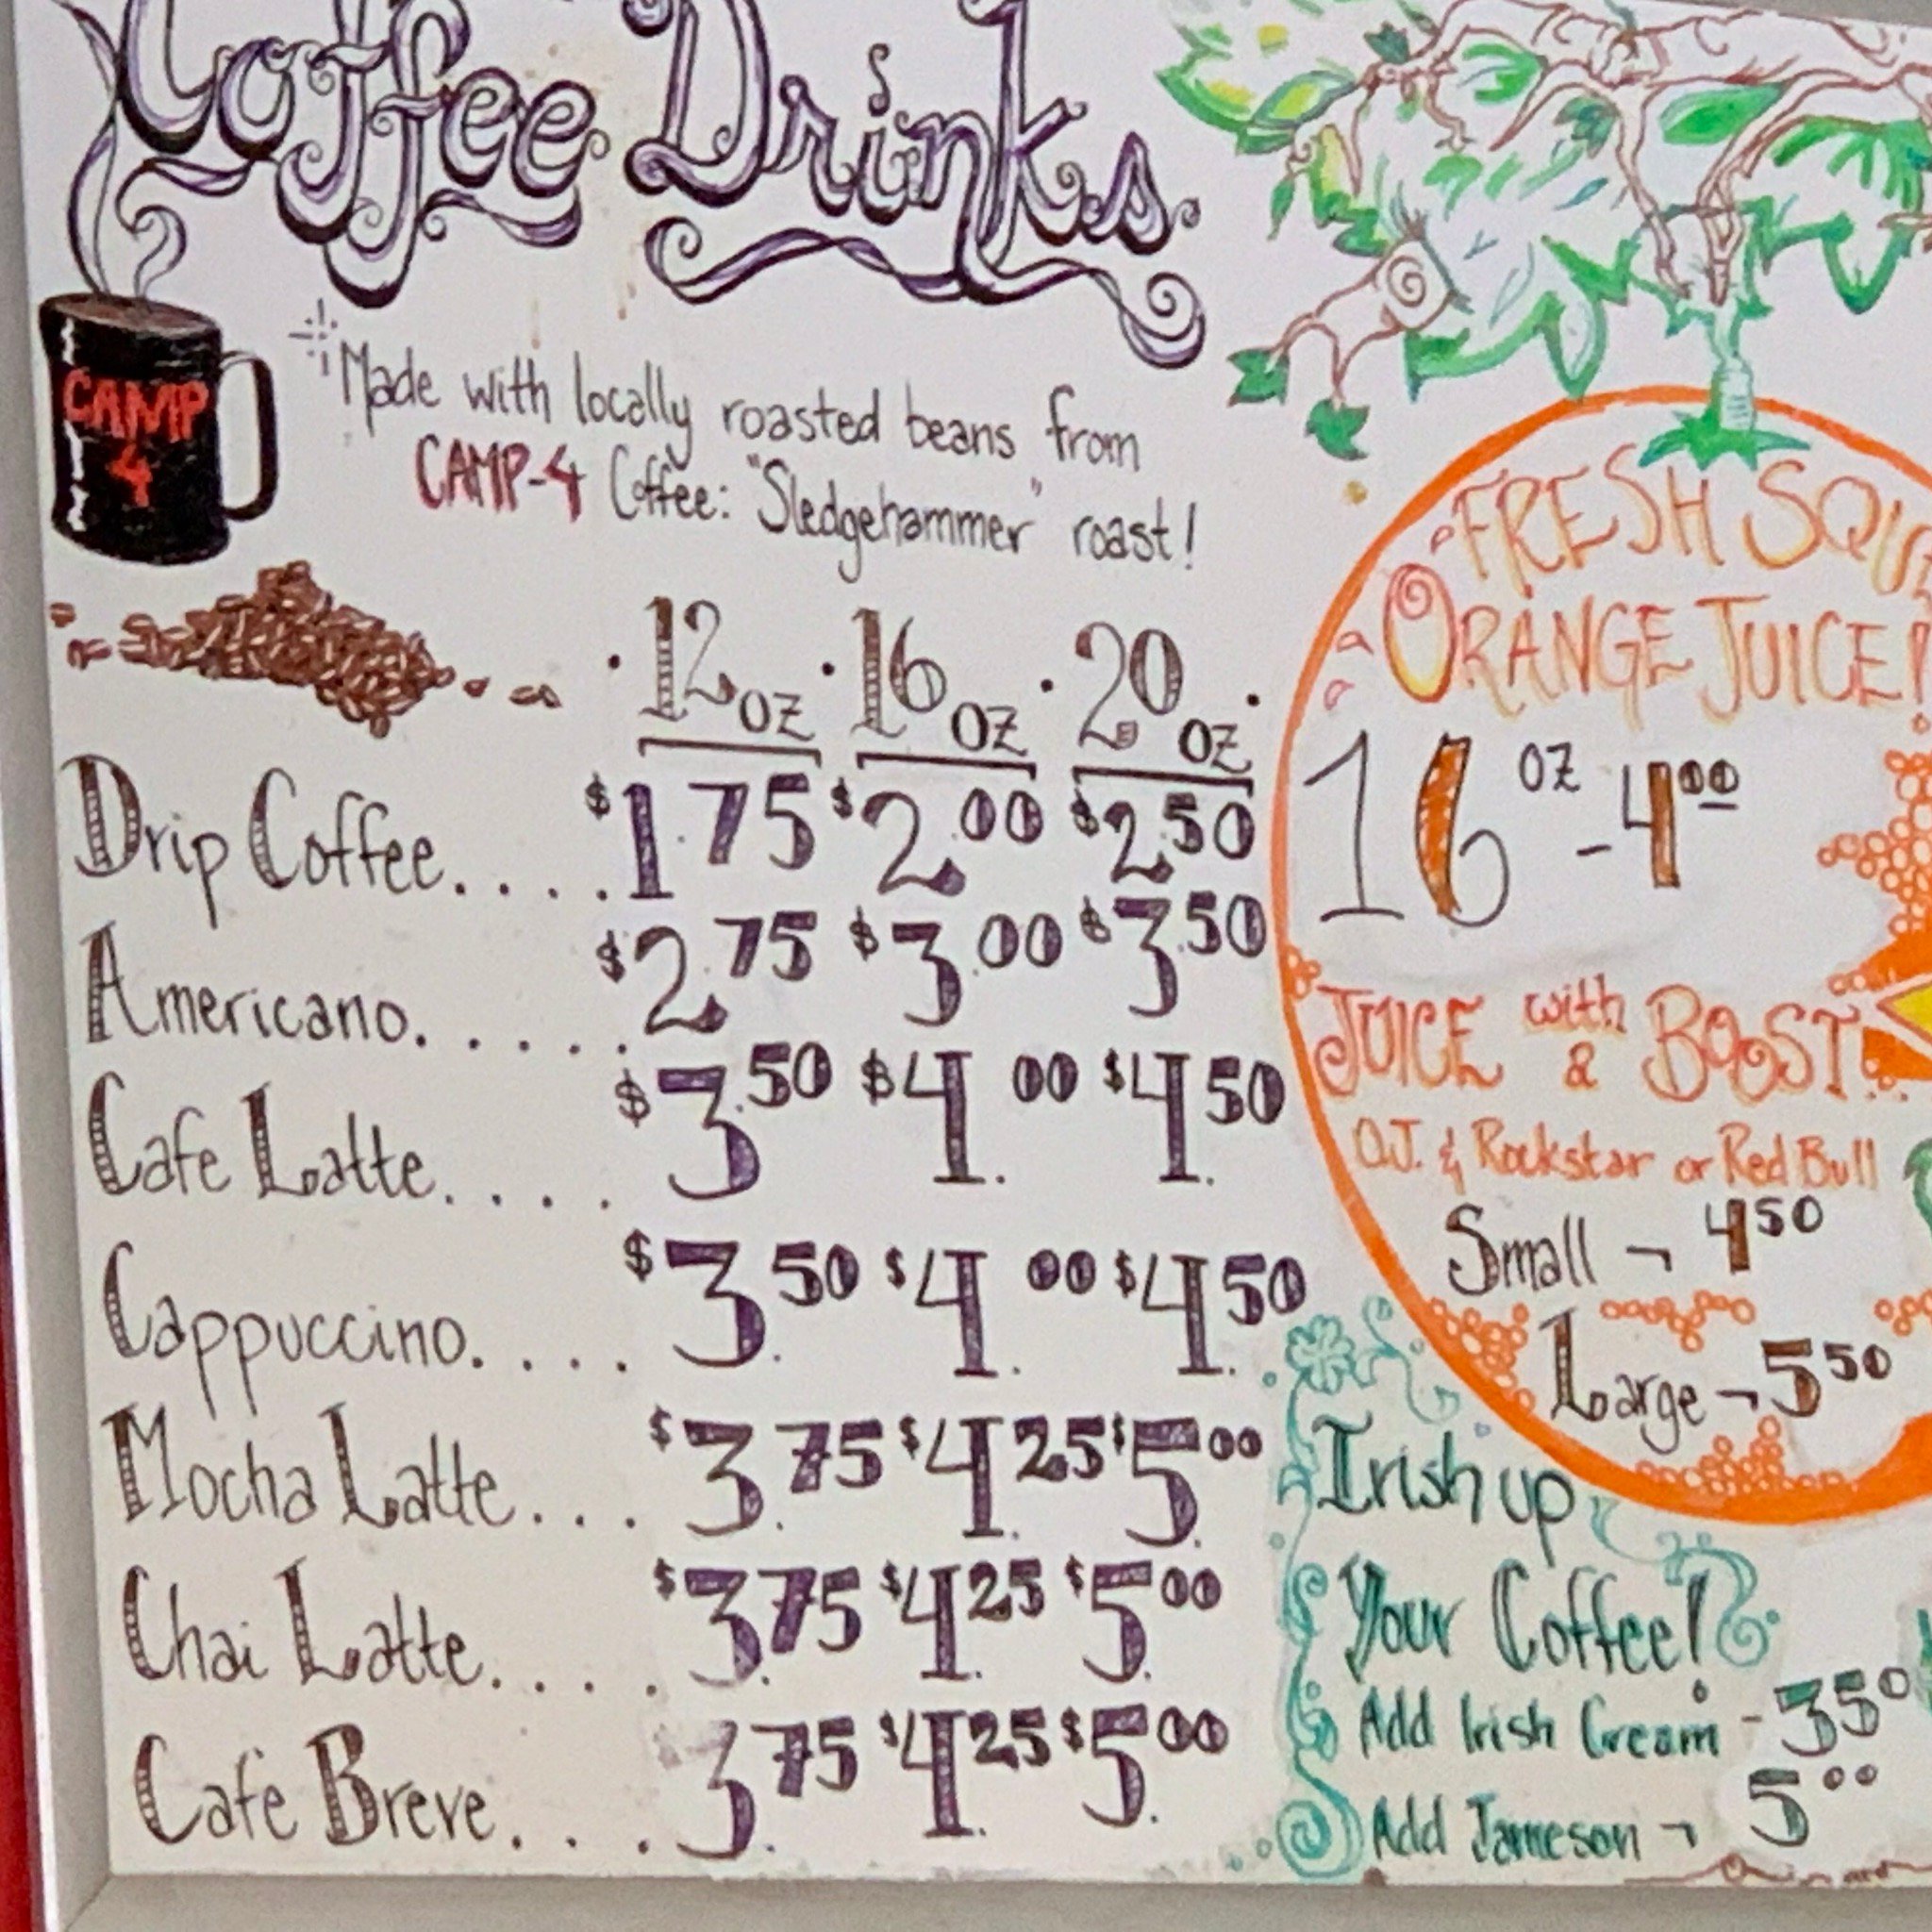 Coffee Drinks
CAMP
4
Made with locally roasted beans from
CAMP-4 Coffee: "Sledgehammer" roast!
· 12 oz · 16 oz · 20 oz ·
Drip Coffee.... $1.75 $2.00 $2.50
Americano..... $2.75 $3.00 $3.50
Cafe Latte.... $3.50 $4.00 $4.50
Cappuccino.... $3.50 $4.00 $4.50
Mocha Latte... $3.75 $4.25 $5.00
Chai Latte.... $3.75 $4.25 $5.00
Cafe Breve.... 3.75 $4.25 $5.00
FRESH SQU
ORANGE JUICE!
16 oz - 4 00
JUICE with & BOOST!
O.J. & Rockstar or Red Bull
Small - 4 50
Large - 5 50
Irish up
Your Coffee!
Add Irish Cream - 3 50
Add Jameson - 5 00